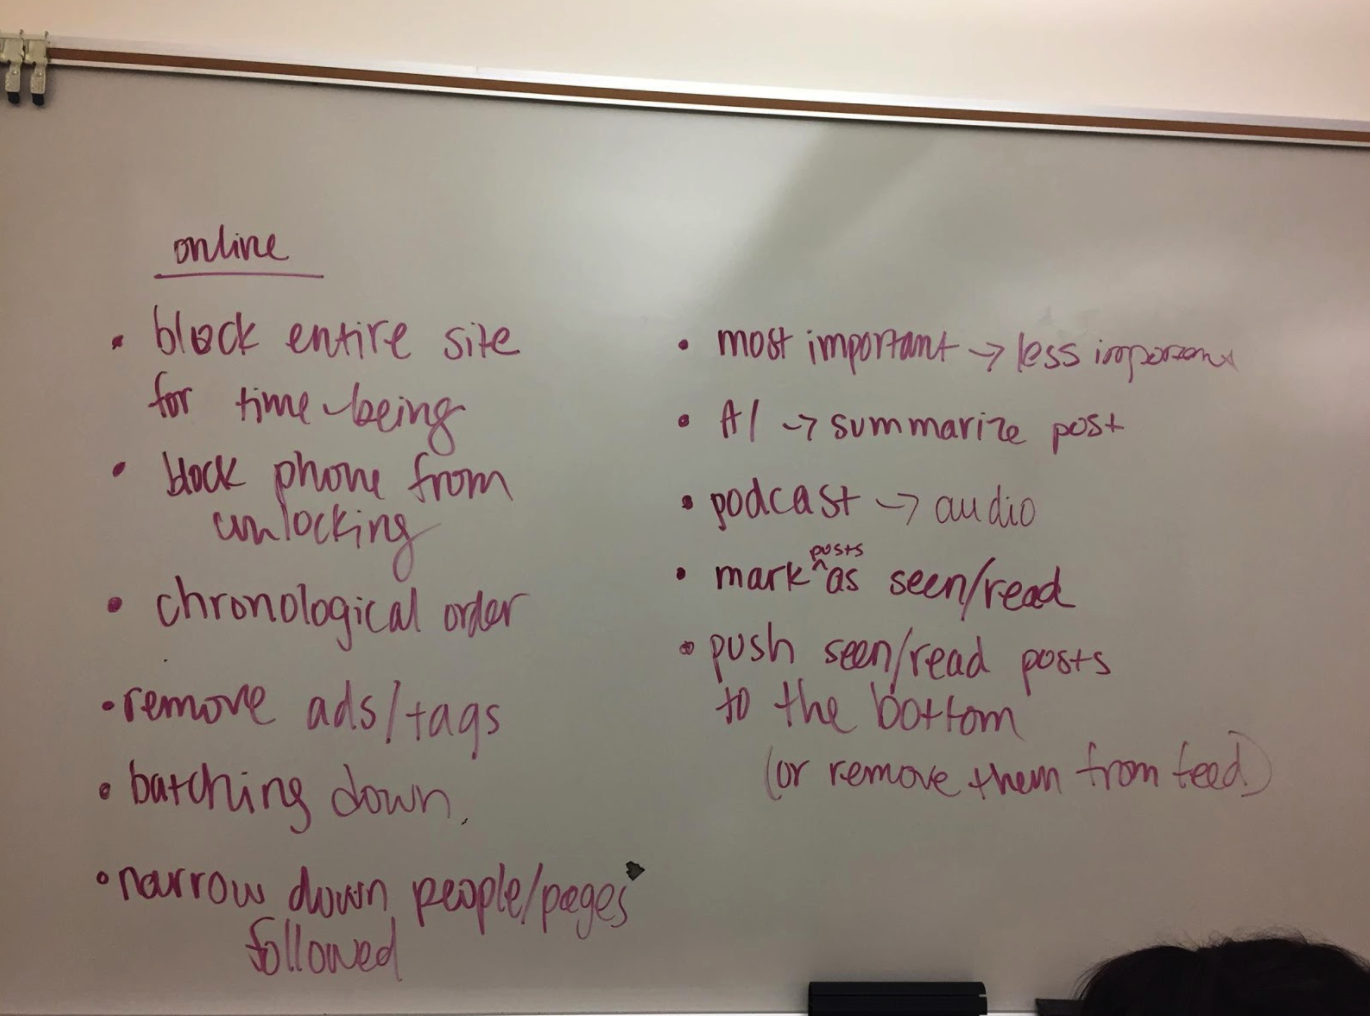 online
• block entire site
for time-being
• block phone from
unlocking
• chronological order
• remove ads/tags
• batching down.
• narrow down people/pages
followed
• most important → less important
• AI → summarize post
• podcast → audio
• mark ^posts as seen/read
• push seen/read posts
to the bottom
(or remove them from feed)